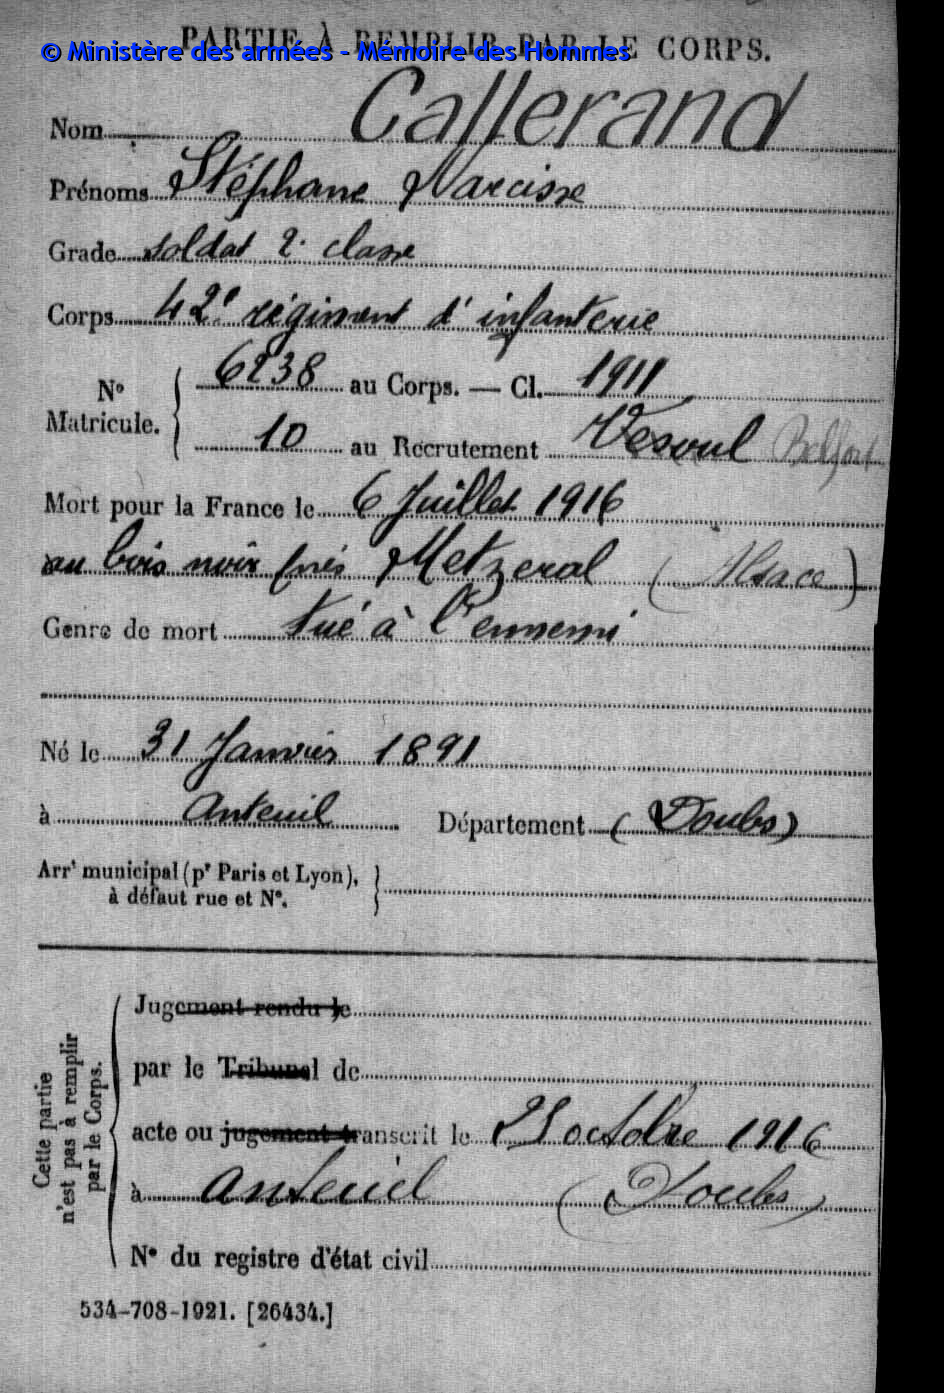 PARTIE À REMPLIR PAR LE CORPS.
© Ministère des armées - Mémoire des Hommes
Nom Callerand
Prénoms Stéphane Narcisse
Grade soldat 2e classe
Corps 42e régiment d'infanterie
N° Matricule. { 6238 au Corps. — Cl. 1911
10 au Recrutement Vesoul Belfort
Mort pour la France le 6 Juillet 1916
au bois noir près Metzeral (Alsace)
Genre de mort tué à l'ennemi
Né le 31 Janvier 1891
à Anteuil Département (Doubs)
Arrt municipal (pr Paris et Lyon),
à défaut rue et N°.
Cette partie
n'est pas à remplir
par le Corps.
Jugement rendu le
par le Tribunal de
acte ou jugement transcrit le 25 octobre 1916
à Anteuil (Doubs)
N° du registre d'état civil
534-708-1921. [26434.]